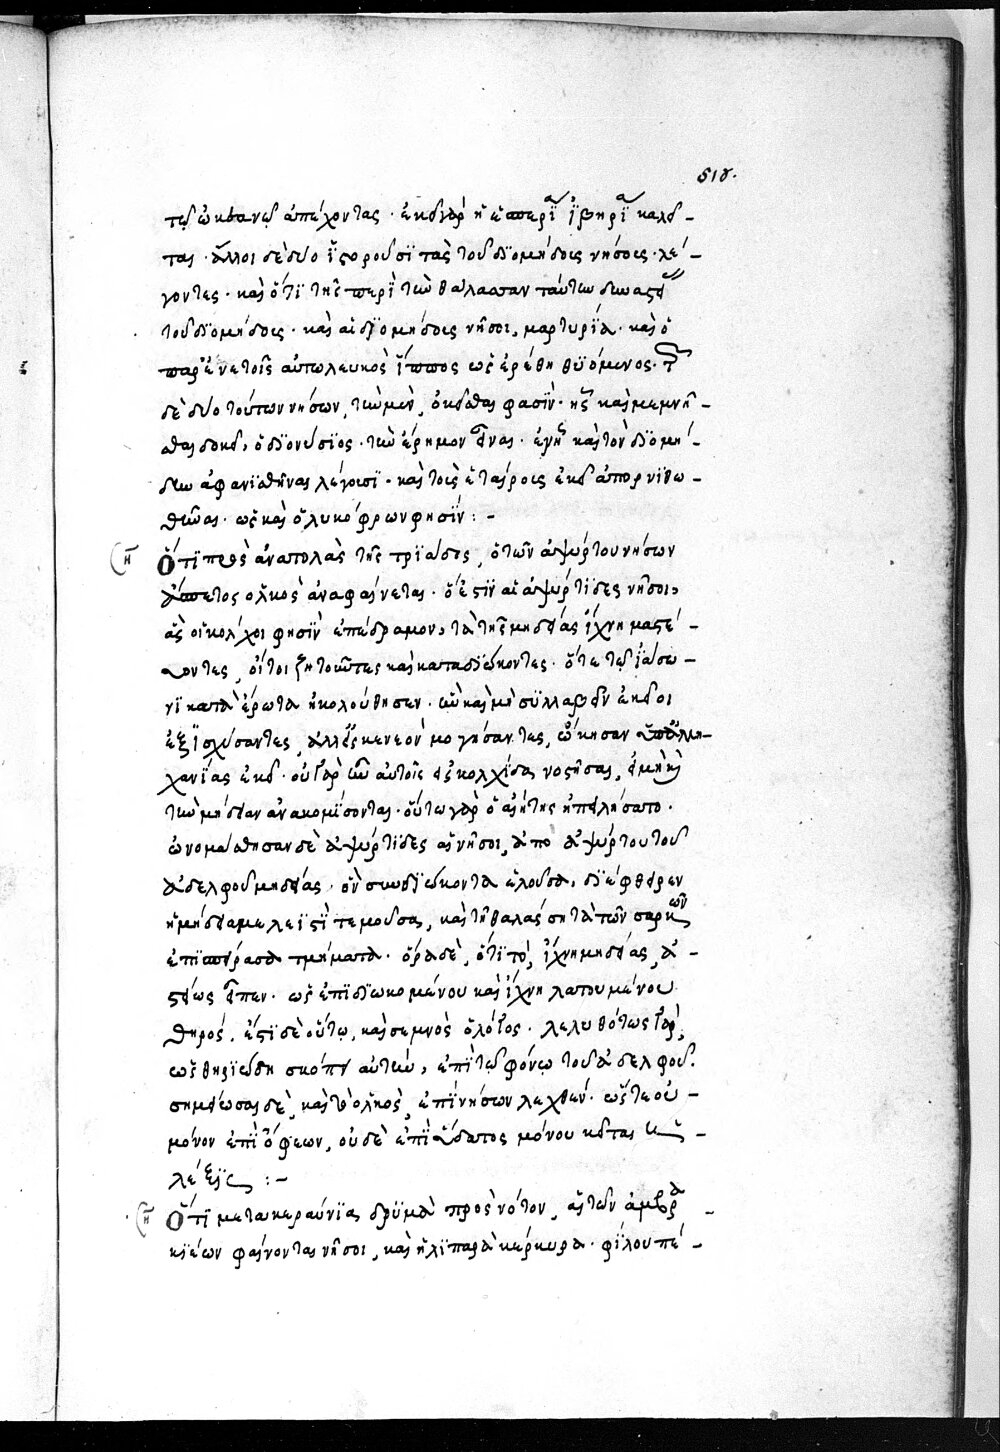 τῷ ὠκεανῷ ἀπέχοντας. ἐκεῖ γὰρ ἡ ἑσπερία ἰβηρία καλεῖ -
ται. ἄλλοι δὲ δύο ἱστοροῦσϊ τὰς τοῦ διομήδους νήσους. λέ -
γοντες. καὶ ὅτϊ τῆς περὶ τὴν θάλασσαν ταύτην δυναστεί
τοῦ διομήδους. καὶ αἱ διομήδους νῆσοι, μαρτυρία. καὶ ὁ
παρ' ἐνετοῖς αὐτῷ λευκὸς ἵππος ὡς ἐρέθη θϋόμενος. τῶν
δὲ δύο τούτων νήσων, τὴν μὲν, οἰκεῖσθαι φασίν. ἧς καὶ μεμνῆ -
σθαι δοκεῖ, ὁ διονύσϊος. τὴν ἔρημον εἶναι. ἐν ᾗ καὶ τὸν διομή -
δην ἀφανισθῆναι λέγουσϊ. καὶ τοὺς ἑταίρους ἐκεῖ ἀπορνιθω -
θῆναι. ὡς καὶ ὁ λυκόφρων φησίν : -
Ὅτϊ πρὸς ἀνατολὰς τῆς τρϊάδος, ὁ τῶν ἀψύρτου νήσων
ἄσπετος ὁλκὸς ἀναφαίνεται. ὅ ἐστϊν αἱ ἀψυρτίδες νῆσοι,
ἃς οἱ κόλχοι φησὶν ἐπέδραμον, τὰ τῆς μηδείας ἴχνη μαστεύ -
οντες, οἵτοι ζητοῦντες καὶ καταδϊώκοντες. ὅτε τῷ ἰάσω -
νϊ κατὰ ἔρωτα ἠκολούθησεν. ἣν καὶ μὴ συλλαβεῖν ἐκεῖ οἱ
ἐξϊσχύσαντες, ἀλλ' εἰς κενεὸν μογήσαντες, ᾤκησαν ὑπ' ἀμη -
χανΐας ἐκεῖ. οὐ γὰρ ἦν αὐτοῖς εἰς κολχίδα νοστῆσαι, εἰ μὴ καὶ
τὴν μήδειαν ἀνακομίσονται. οὕτω γὰρ ὁ αἰήτης ἠπειλήσατο.
ὠνομάσθησαν δὲ ἀψυρτίδες αἱ νῆσοι, ἀπὸ ἀψύρτου τοῦ
ἀδελφοῦ μηδείας. ὃν συνδϊώκοντα ἑλοῦσα, διέφθειρεν
ἡ μήδεια μελεϊστὶ τεμοῦσα, καὶ τῇ θαλάσσῃ τὰ τῶν σαρκῶν
ἐπισπείρασα τμήματα. ὅρα δὲ, ὅτι τὸ, ἴχνη μηδείας, ἀ -
στείως εἶπεν. ὡς ἐπϊδϊωκομένου καὶ ἴχνηλατουμένου
θηρός. ἔστϊ δὲ οὕτω, καὶ σεμνὸς ὁ λόγος. λεληθότως γὰρ,
ὡς θηριώδη σκόπτει αὐτὴν, ἐπὶ τῷ φόνῳ τοῦ ἀδελφοῦ.
σημείωσαι δὲ, καὶ τὸ ὁλκὸς, ἐπὶ νήσων λεχθέν. ὥστε οὐ -
μόνον ἐπὶ ὄφεων, οὐδὲ ἐπὶ ὕδατος μόνου κεῖται ἡ -
λέξϊς : -
Ὅτϊ μετὰ κεραύνϊα δρϋμὰ πρὸς νότον, αἱ τῶν ἀμβρα -
κϊέων φαίνονται νῆσοι, καὶ ἡ λϊπαρὰ κέρκυρα. φίλου πέ -